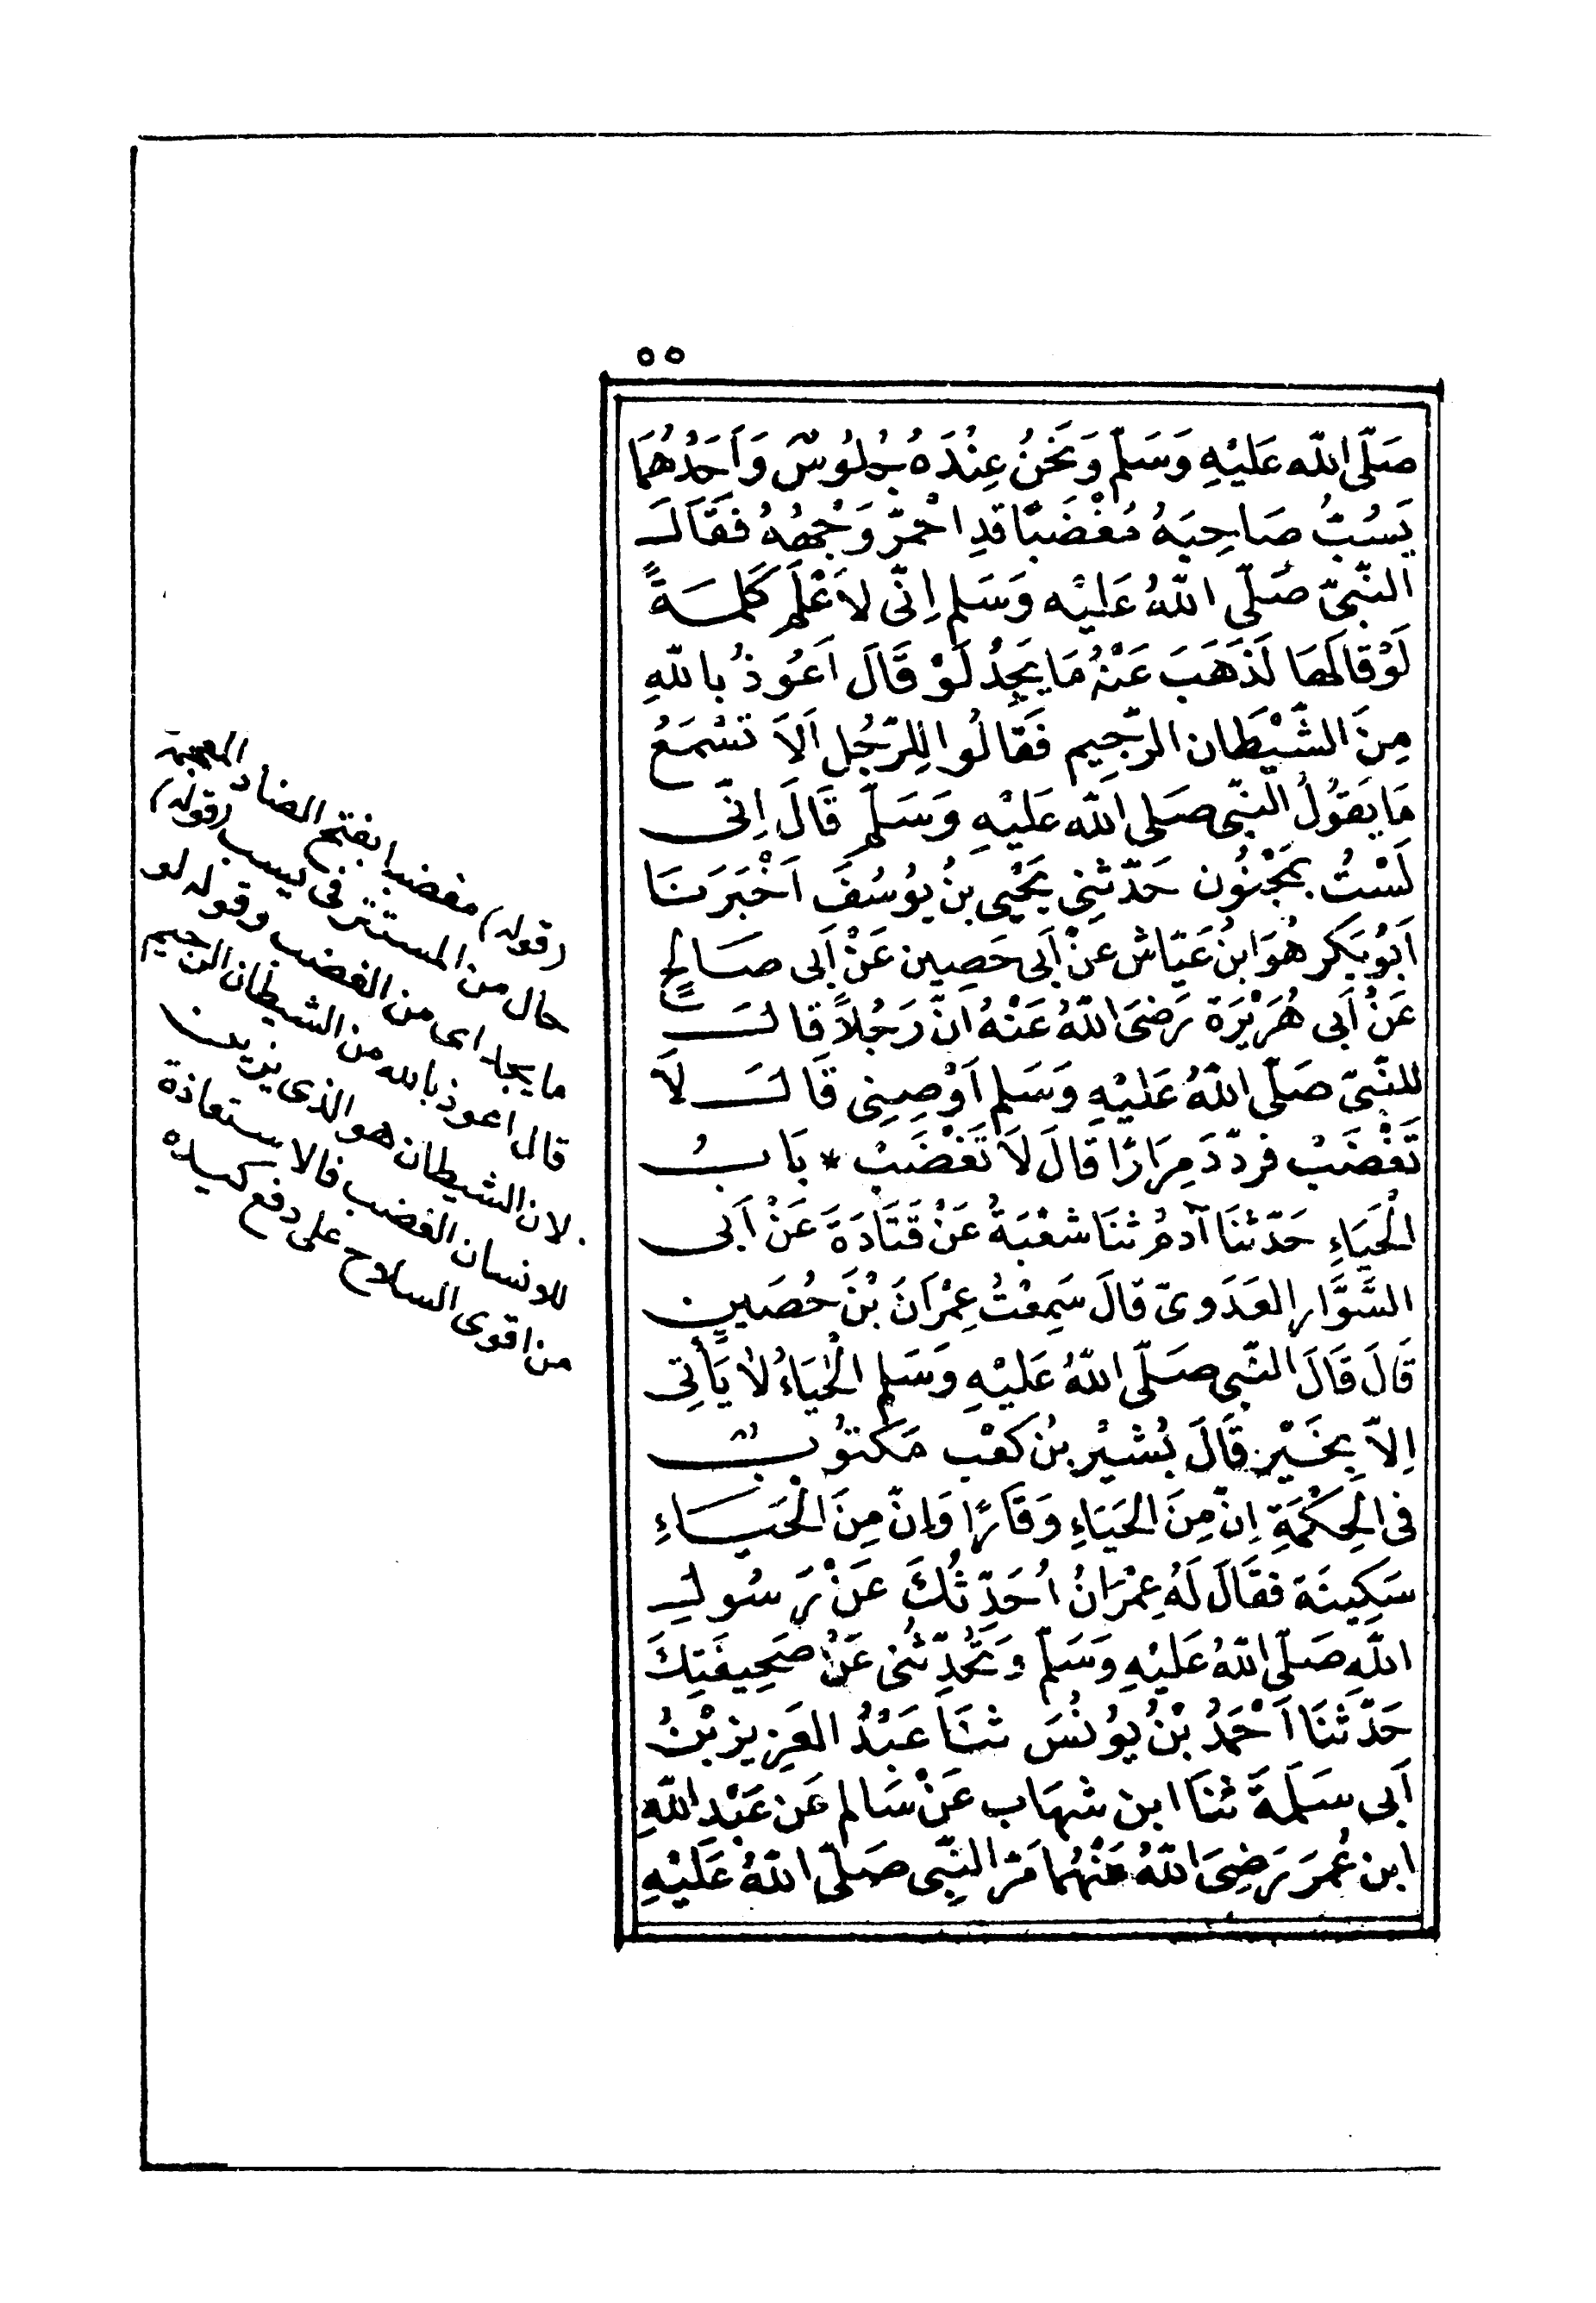 ٥٥
صَلَّى اللّه عَلَيْهِ وَسَلَّم وَنَحْنُ عِنْدَهُ جُلُوسٌ وَاَحَدُهُمَا
يَسُبُّ صَاحِبَهُ مُغْضَبًا قَدِ احْمَرَّ وَجْهُهُ فَقَالَ
النَّبِىّ صَلَّى اللّهُ عَلَيْه وَسَلم اِنّى لاَعْلَم كَلِمَةً
لَوْ قالَهَا لَذَهَبَ عَنْهُ مَا يَجِدُ لَوْ قَالَ اَعُوذُ بِاللّهِ
مِنَ الشَّيْطَان الرَّجِيم فَقَالُوا لِلرَّجُل اَلاَ تَسْمَعُ
مَا يَقُولُ النَّبِّى صَلى اللّه عَلَيْهِ وَسَلَّم قَالَ اِنّى
لَسْتُ بِمَجْنُون حَدّثَنِى يَحْيى بنُ يُوسُفَ اَخْبَرَنَا
اَبُو بَكر هُوَ ابنُ عَيّاش عَنْ اَبى حَصِين عَنْ اَبى صَالِحٍ
عَنْ اَبى هُرَيْرَةَ رَضِىَ اللّهُ عَنْهُ انّ رَجُلاً قَالَ
للنَّبِىّ صَلَّى اللّهُ عَلَيْهِ وَسَلم اَوْصِنِى قَالَ لاَ
تَغْضَبْ فَردّدَ مِرَارًا قَالَ لاَ تَغْضَبْ * بَابُ
الْحَيَاءِ حَدّثنَا آدمُ ثنَا شعْبَةُ عَنْ قَتَادَةَ عَنْ اَبى
السَّوَّار العَدَوىّ قَالَ سَمِعْتُ عِمْرَانَ بْنَ حُصَيْنٍ
قَالَ قَالَ النَّبِى صَلَّى اللّهُ عَلَيْهِ وَسَلم الْحَيَاءُ لاَ يَأتِى
اِلاّ بِخَيْرٍ قَالَ بُشَيْرُ بنُ كَعْب مَكْتُوبٌ
فى الْحِكْمَةِ اِنّ مِنَ الحَيَاءِ وَقَارًا وَاِنّ مِنَ الْحَيَاءِ
سَكِينَة فقَالَ لَهُ عِمْرَانُ اُحَدِّثُكَ عَنْ رَسُولِ
اللّهِ صَلَّى اللّهُ عَلَيْهِ وَسَلَّم وَتُحَدِّثُنى عَنْ صَحِيفَتِكَ
حَدّثنَا اَحْمَدُ بْنُ يُونُسَ ثنَا عَبْدُ العَزِيز بْنُ
اَبى سَلَمَةَ ثنَا ابن شهَاب عَنْ سَالم عَن عَبْدِ اللّهِ
ابن عُمَرَ رَضِىَ اللّهُ عَنْهُما مَرّ النَّبِى صَلَّى اللّهُ عَلَيْهِ
(قوله) مغضبا بفتح الضاد المعجمة
حال من المستتر فى يسب (قوله)
ما يجد اى من الغضب وقوله لو
قال اعوذ بالله من الشيطان الرجيم
لان الشيطان هو الذى يزين
للانسان الغضب فالاستعاذة
من اقوى السلاح على دفع كيده